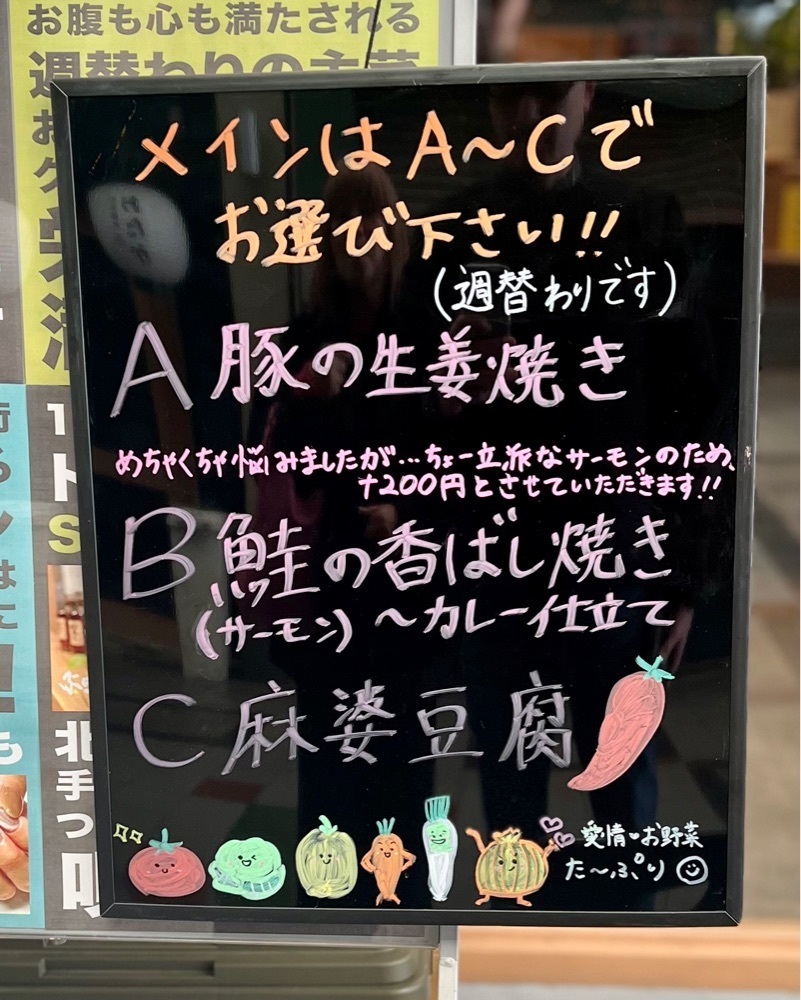 お腹も心も満たされる
週替わりの主菜
メインはA～Cで
お選び下さい!!
(週替わりです)
A 豚の生姜焼き
めちゃくちゃ悩みましたが…ちょー立派なサーモンのため、
+200円とさせていただきます!!
B 鮭の香ばし焼き
(サーモン) ～カレー仕立て
C 麻婆豆腐
愛情♥お野菜
た～ぷり
北
手
つ